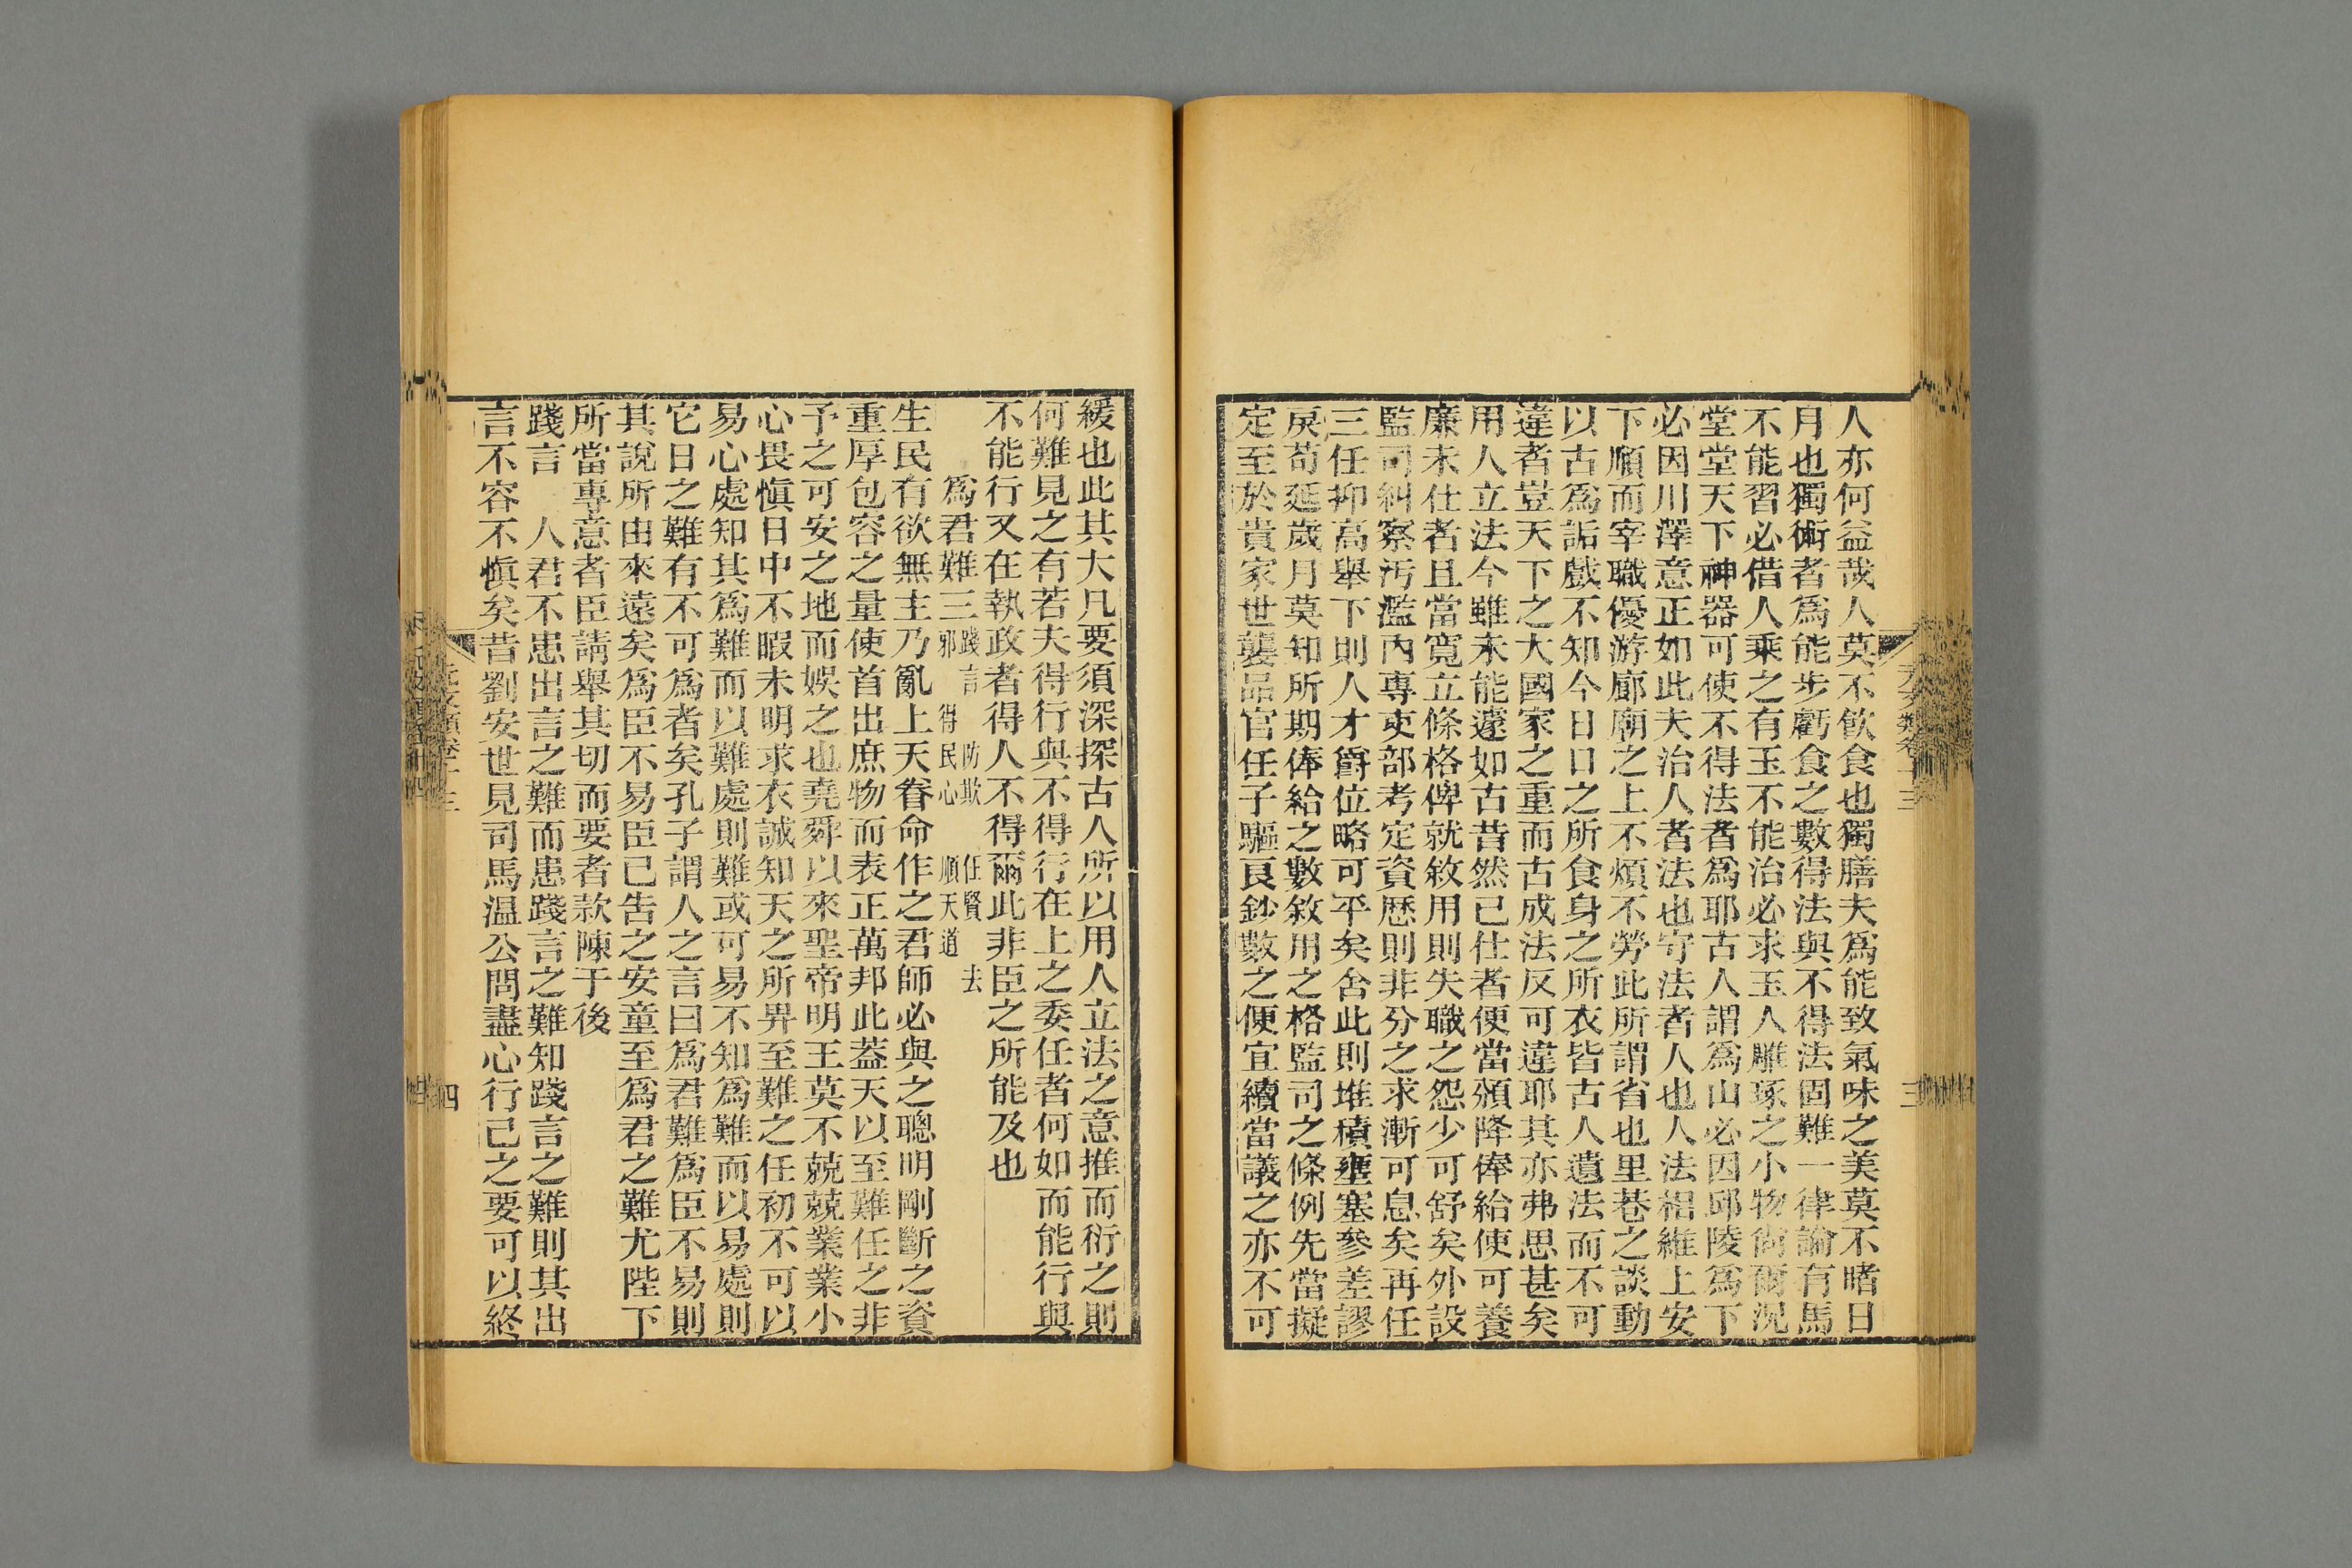 人亦何益哉人莫不飲食也獨膳夫爲能致氣味之美莫不睹日
月也獨術者爲能步虧食之數得法與不得法固難一律論有馬
不能習必借人乘之有玉不能治必求玉人雕琢之小物尚爾況
堂堂天下神器可使不得法者爲耶古人謂爲山必因邱陵爲下
必因川澤意正如此夫治人者法也守法者人也人法相維上安
下順而宰職優游廊廟之上不煩不勞此所謂省也里巷之談動
以古爲詬戲不知今日口之所食身之所衣皆古人遺法而不可
違者豈天下之大國家之重而古成法反可違耶其亦弗思甚矣
用人立法今雖未能遽如古昔然已仕者便當頒降俸給使可養
廉未仕者且當寬立條格俾就敘用則失職之怨少可舒矣外設
監司糾察汚濫內專吏部考定資歷則非分之求漸可息矣再任
三任抑高舉下則人才爵位略可平矣舍此則堆積壅塞參差謬
戾苟延歲月莫知所期俸給之數敘用之格監司之條例先當擬
定至於貴家世襲品官任子驅良鈔數之便宜續當議之亦不可
緩也此其大凡要須深探古人所以用人立法之意推而衍之則
何難見之有若夫得行與不得行在上之委任者何如而能行與
不能行又在執政者得人不得爾此非臣之所能及也
爲君難三踐言 防欺 任賢 去
邪 得民心 順天道
生民有欲無主乃亂上天眷命作之君師必與之聰明剛斷之資
重厚包容之量使首出庶物而表正萬邦此葢天以至難任之非
予之可安之地而娛之也堯舜以來聖帝明王莫不兢兢業業小
心畏愼日中不暇未明求衣誠知天之所畀至難之任初不可以
易心處知其爲難而以難處則難或可易不知爲難而以易處則
它日之難有不可爲者矣孔子謂人之言曰爲君難爲臣不易則
其說所由來遠矣爲臣不易臣已告之安童至爲君之難尤陛下
所當專意者臣請舉其切而要者款陳于後
踐言 人君不患出言之難而患踐言之難知踐言之難則其出
言不容不愼矣昔劉安世見司馬温公問盡心行己之要可以終
四
三